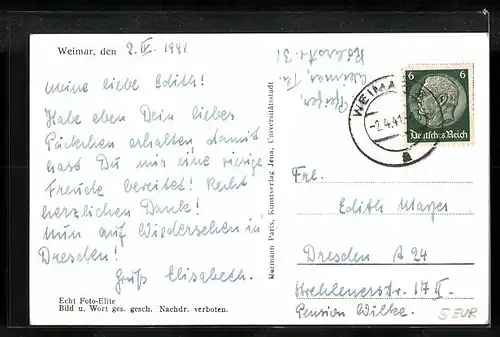 Weimar, den 2. IV. 1941
Meine liebe Edith!
Habe eben Dein liebes
Päckchen erhalten, damit
hast Du mir eine riesige
Freude bereitet! Recht
herzlichen Dank!
Nun auf Wiedersehen in
Dresden!
Gruß Elisabeth.
Echt Foto-Elite
Bild u. Wort ges. gesch. Nachdr. verboten.
Hermann Paris, Kunstverlag Jena, Universitätsstadt
Weimar, Th.
WEIMAR
-2.4.41
a
6 6
Deutsches Reich
Frl.
Edith Mayer
Dresden A 24
Strehlenerstr. 17 II.
Pension Wilke.
5 EUR